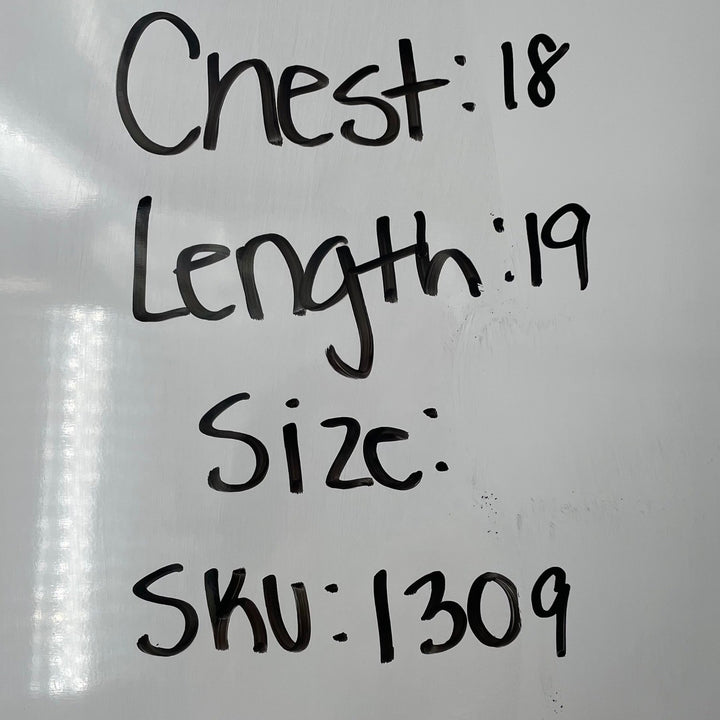 Chest: 18
Length: 19
Size:
SKU: 1309